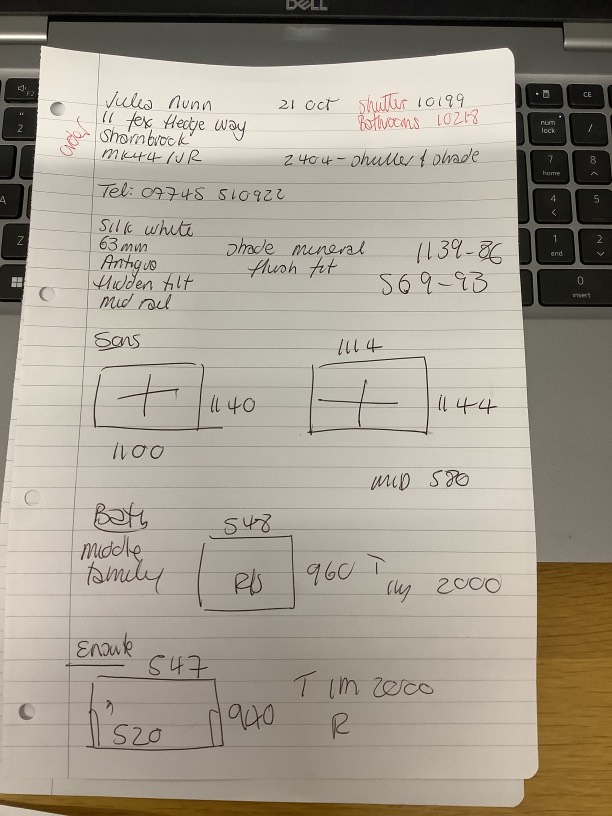 DELL
Julea Nunn 21 Oct Shutter 10199
11 fox Hedge way Bathrooms 10218
order
Sharnbrook
MK44 1JR 2404 - Shutter & shade
Tel: 07748 510922
Silk white
63mm shade mineral 1139-86
Antique flush fit 569-93
Hidden tilt
Mid rail
Sons
1114
1140 1144
1100
MID 580
Bath
548
middle
family R/B 960 T
2000
Ensuite
547
T 1m 2000
520 940
R